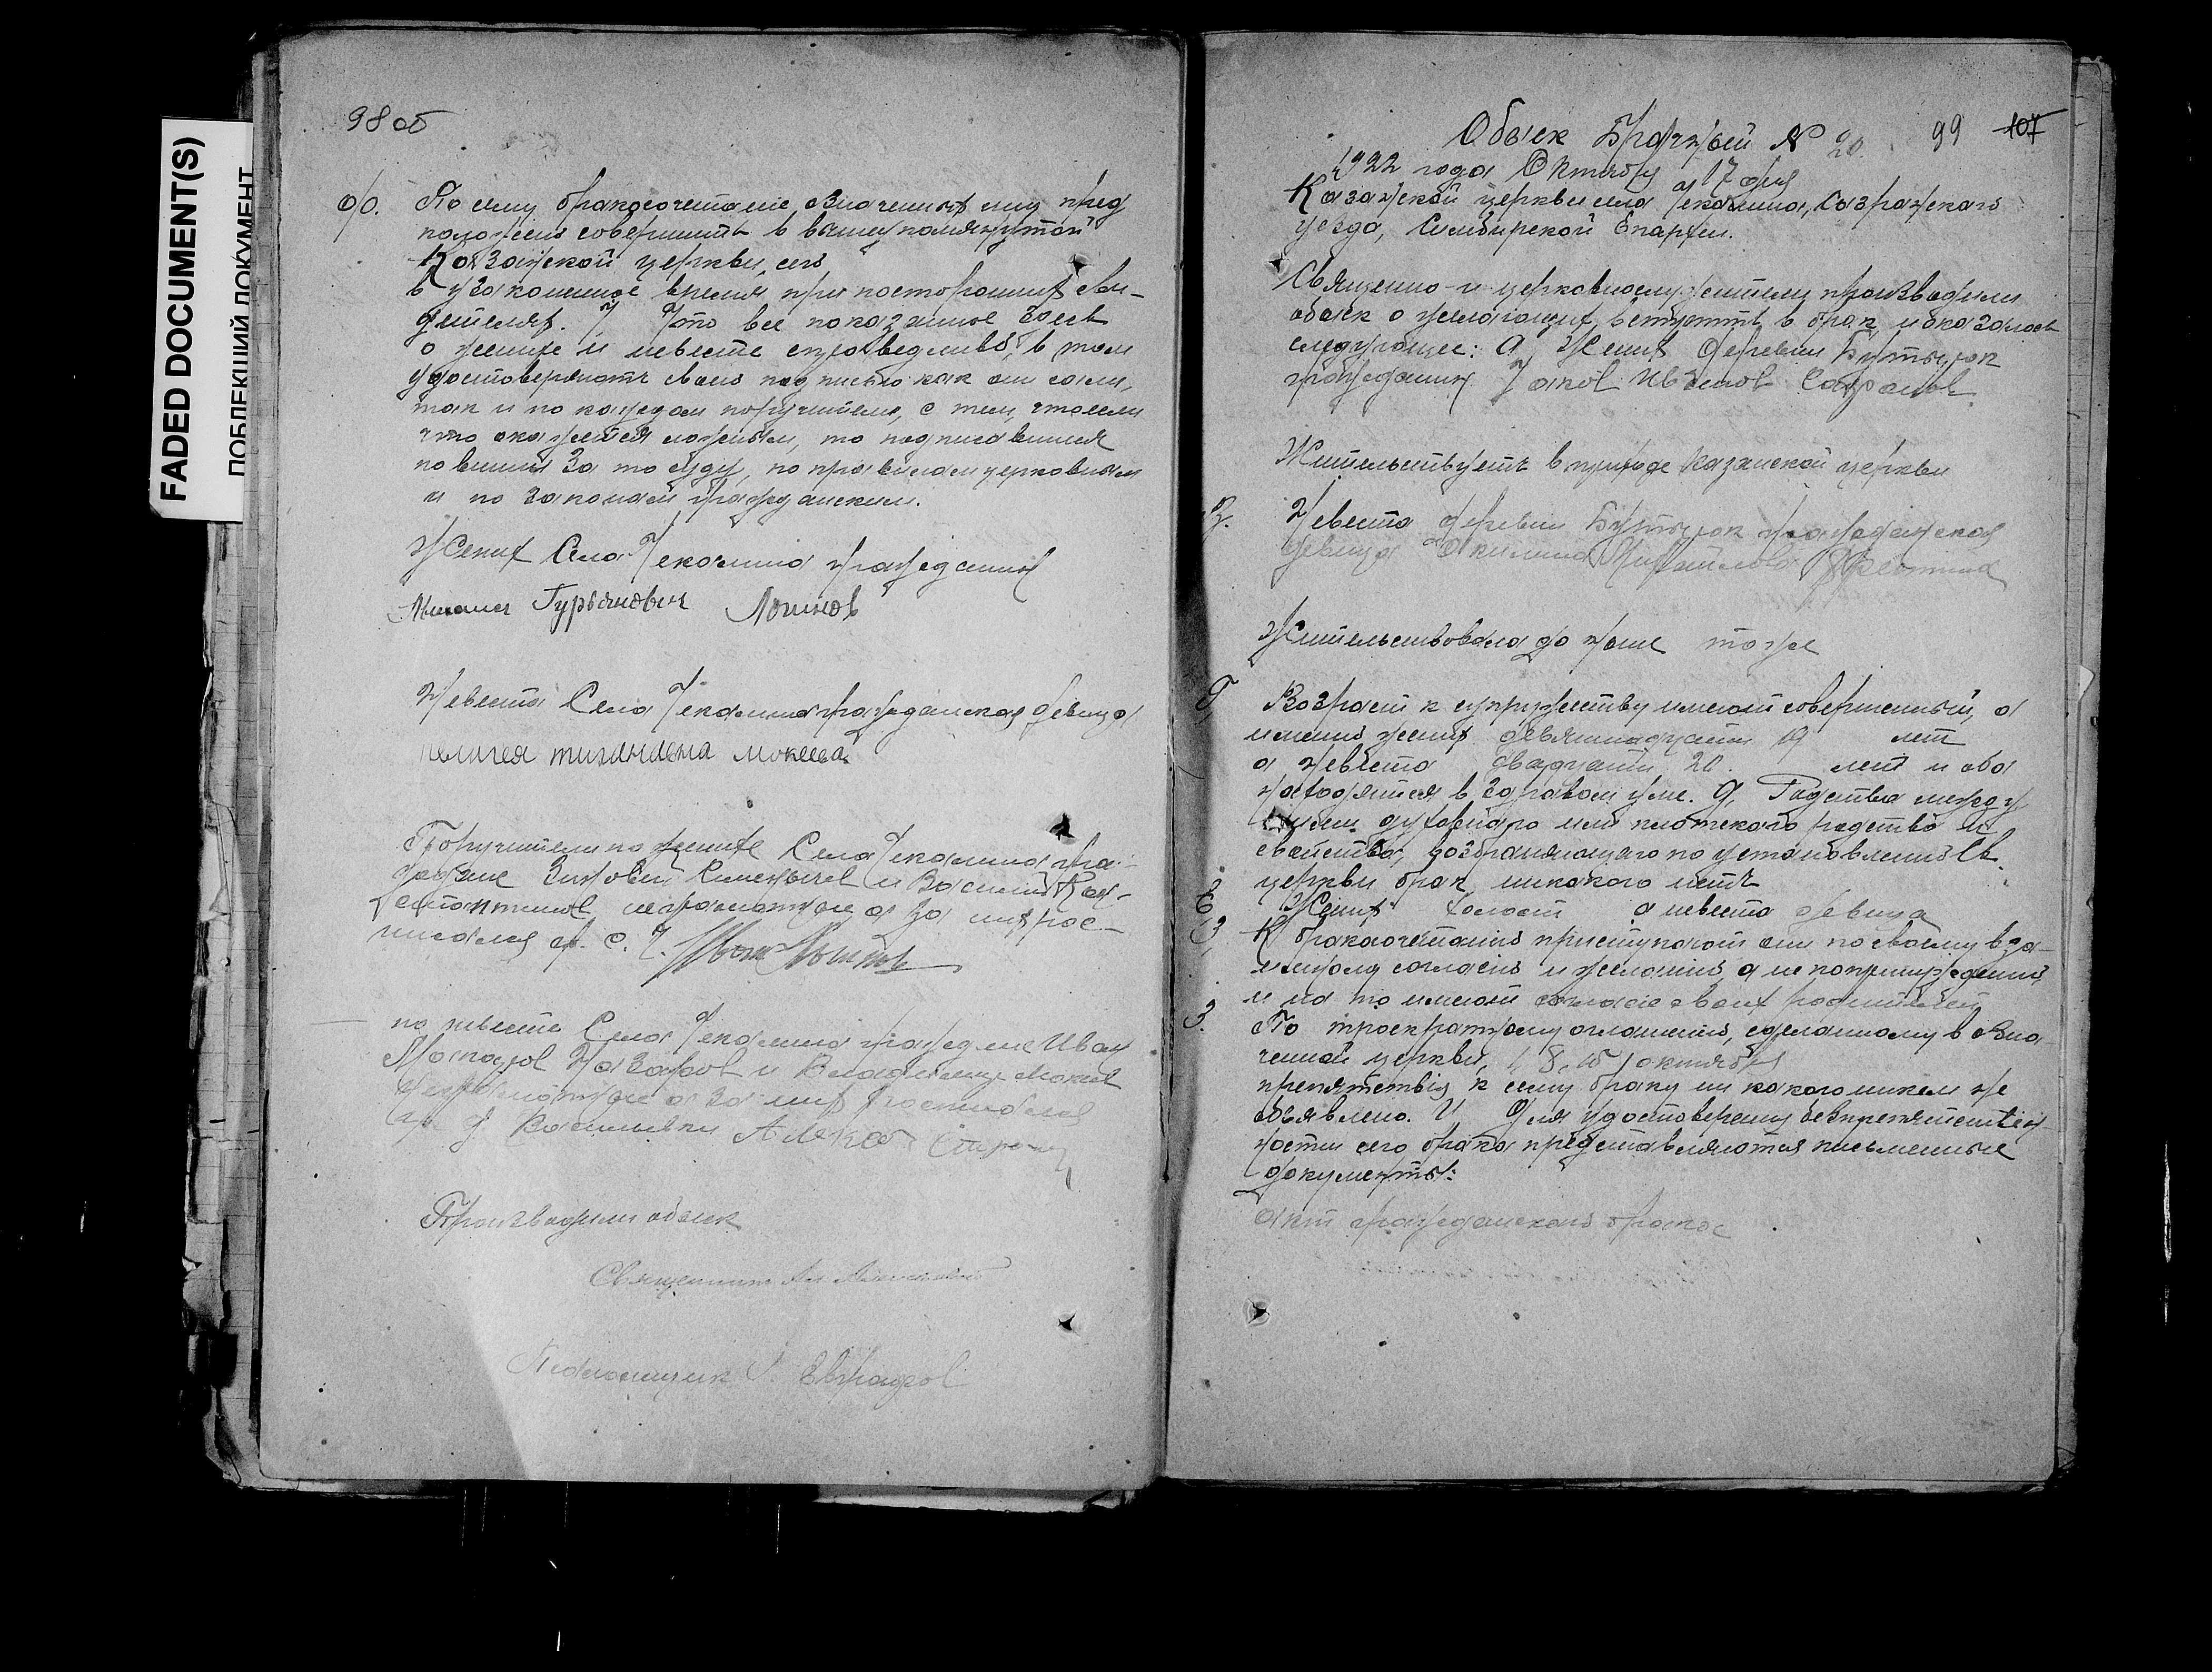 FADED DOCUMENT(S)
ПОБЛЕКШИЙ ДОКУМЕНТ
98 об
По сему бракосочетание означенных лиц пред
положено совершить в вышеупомянутой
Казанской церкви, сего
в узаконенное время при посторонних сви-
детелях. Что все показанное здесь
о женихе и невесте справедливо, в том
удостоверяют своею подписью как они сами,
так и по каждом поручители, с тем, что если
что окажется ложным, то подписавшиеся
повинны за то суду, по правилам церковным
и по законам гражданским.
Жених Села Чекалина гражданин
Гурьянович Логинов
Невеста Села Чекалина гражданская девица
пелагея мокеева
Поручители по женихе Села Чекалина гра-
ждане и Василий
неграмотные а за них рос-
писался гр. с. Ч. Иван
по невесте Села Чекалина граждане Иван
Назаров и Владимир Мокеев
неграмотные а за них росписался
гр. д Васильевки
Производили обыск
Священник
Псаломщик
Обыск Брачный № 20. 99 107
1922 года Октября 17 дня
Казанской церкви села Чекалина, Сызранского
уезда, Симбирской Епархии.
Священно-и церковнослужители производили
обыск о желающих вступить в брак, и оказалось
следующее: а, Жених деревни Бутырок
гражданин Яков Иванов
Жительствует в приходе Казанской церкви
В. Невеста деревни Бутырок гражданская
девица Акилина Михайлова
Жительствовала до ныне тоже
Г, Возраст к супружеству имеют совершенный, а
именно жених девятнадцати 19 лет
а невеста двадцати 20. лет и оба
находятся в здравом уме. Д, Родства между
ними духовнаго или плотскаго родства и
свойства, возбраняющаго по установлению Св.
церкви брак, никакого нет
Е, Жених холост а невеста девица
К бракосочетанию приступают они по своему вза-
имному согласию и желанию, а не по принуждению
и на то имеют согласие своих родителей
З. По троекратному оглашению, сделанному в озна
ченной церкви, 1, 8, 15 октября
препятствия к сему браку ни какого никем не
объявлено. И, Для удостоверения безпрепятствен-
ности сего брака представляются письменные
документы:
Акт гражданского брака